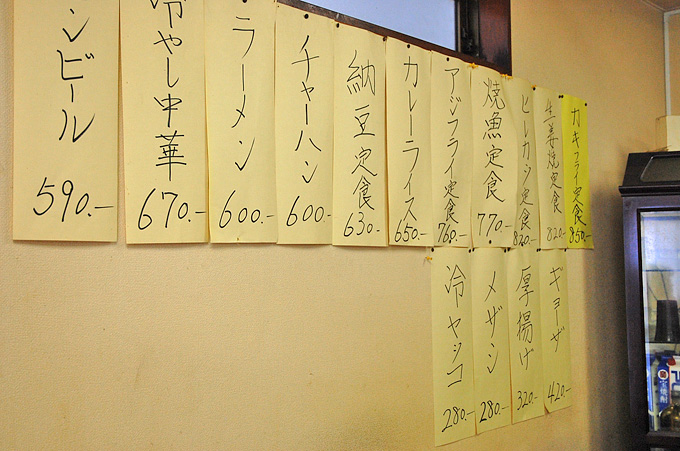 ンビール
590.-
冷やし中華
670.-
ラーメン
600.-
チャーハン
600.-
納豆定食
630.-
カレーライス
650.-
アジフライ定食
760.-
焼魚定食
770.-
ヒレカツ定食
820.-
生姜焼定食
820.-
カキフライ定食
850.-
冷ヤッコ
280.-
メザシ
280.-
厚揚げ
320.-
ギョーザ
420.-
宝焼酎